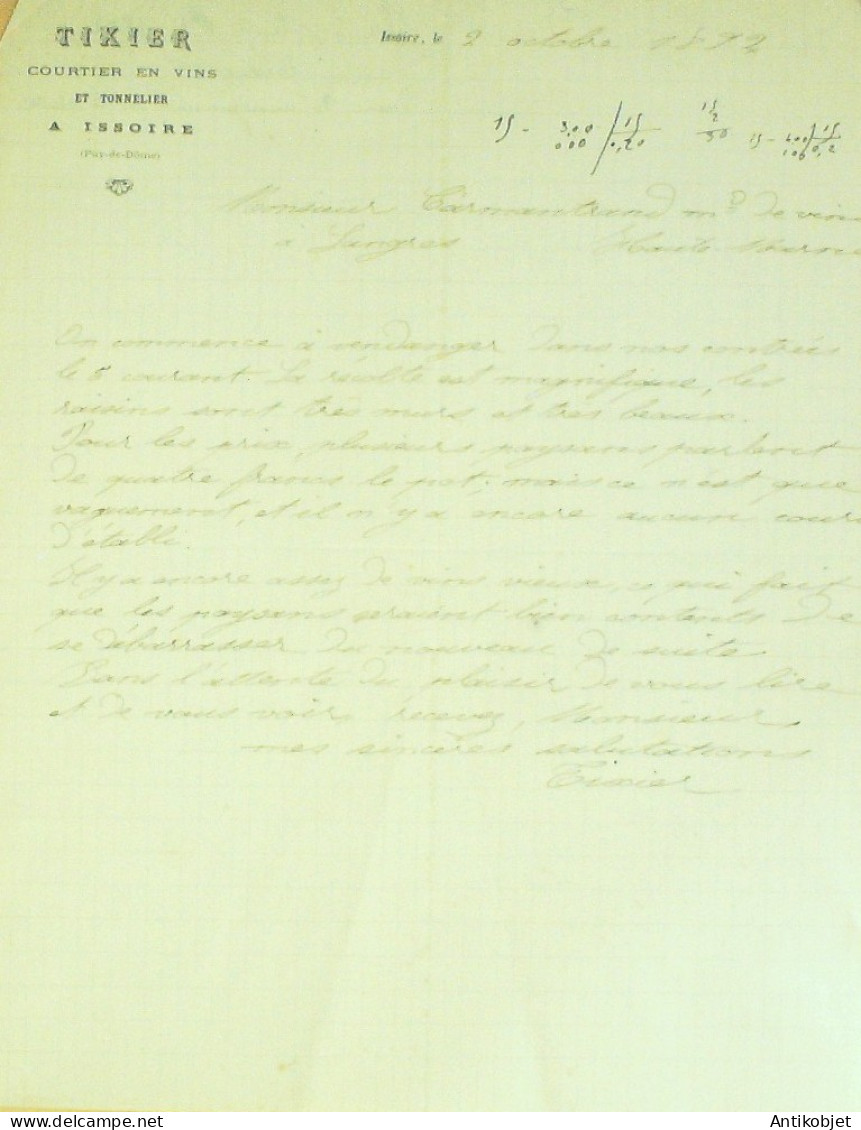 TIXIER
COURTIER EN VINS
ET TONNELIER
A ISSOIRE
(Puy-de-Dôme)
Issoire, le 2 octobre 1892
15 - 3,00 15
000 0,20
15
2
30
15 - 400 15
100 0,2
Monsieur md de vin
à Langres Haute Marne
On commence à vendanger dans nos contrées
le 5 courant. La récolte est magnifique, les
raisins sont très murs et très beaux.
Pour les prix, plusieurs paysans parlent
de quatre francs le pot; mais ce n'est que
vaguement, et il n'y a encore aucun cour
d'établi.
Il y a encore assez de vins vieux, ce qui fait
que les paysans seraient bien contents de
se débarrasser du nouveau de suite.
Dans l'attente du plaisir de vous lire
et de vous voir, recevez, Monsieur
mes sincères salutations
Tixier
Antikobjet